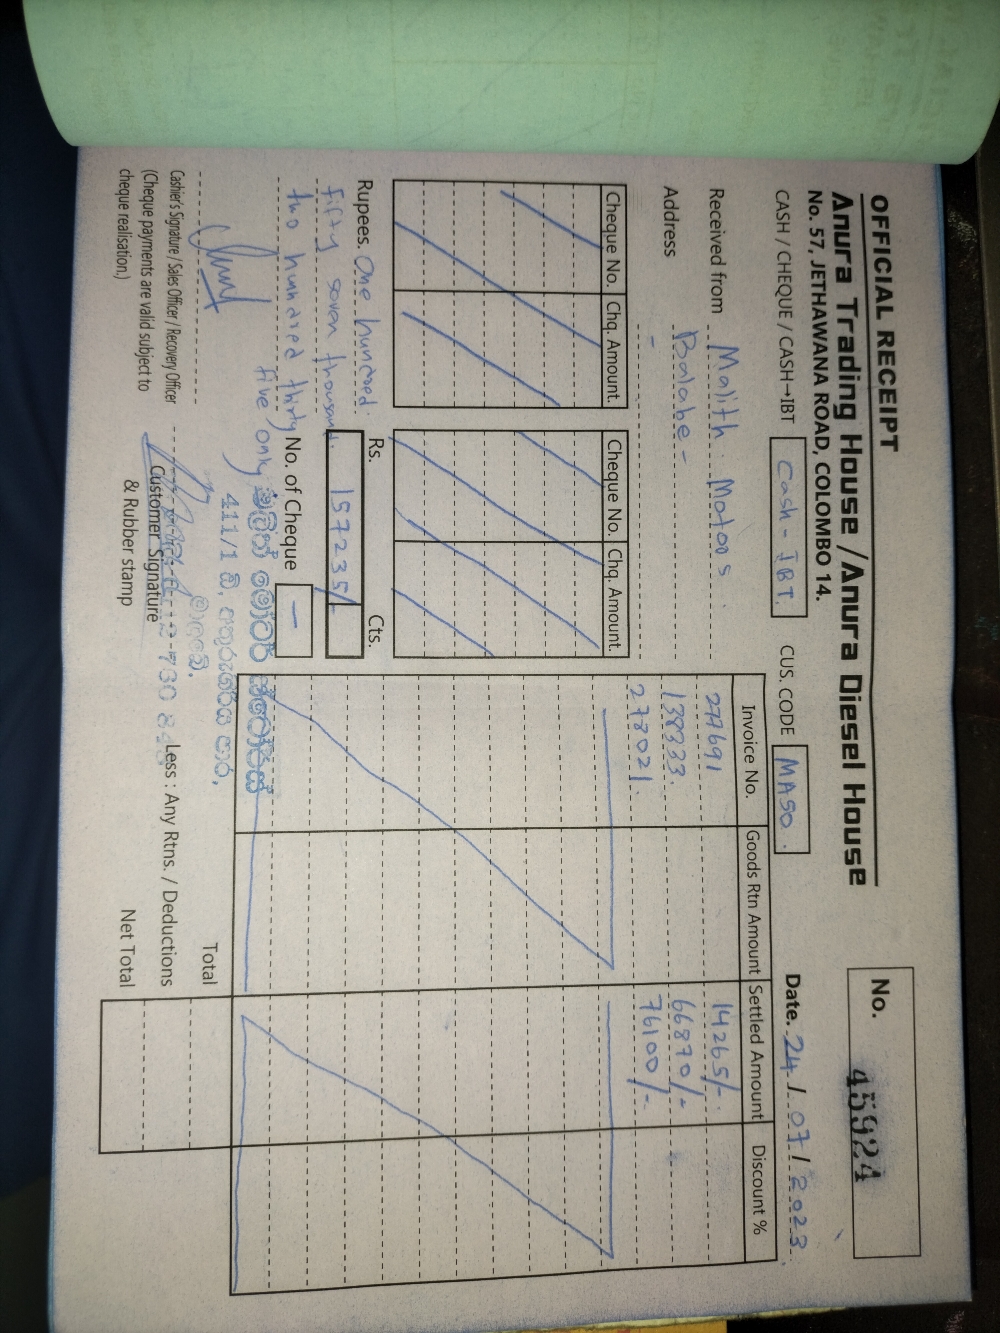 OFFICIAL RECEIPT
Anura Trading House / Anura Diesel House
No. 57, JETHAWANA ROAD, COLOMBO 14.
No. 45924
CASH / CHEQUE / CASH→IBT Cash - IBT. CUS. CODE MA50. Date. 24 / 07 / 2023
Received from Malith Motoos.
Address Balabe -
-
Cheque No. Chq. Amount. Cheque No. Chq. Amount.
Rupees. One hundred.
fifty seven thousand.
two hundred thirty
five only
Rs. Cts.
157235/-
No. of Cheque -
Invoice No. Goods Rtn Amount Settled Amount Discount %
277691 14265/-
138333. 66870/-
278021. 76100/-
Total
Less : Any Rtns. / Deductions
Net Total
මෝටර්
411/1 බී,
Cashier's Signature / Sales Officer / Recovery Officer
(Cheque payments are valid subject to
cheque realisation.)
Customer Signature
& Rubber stamp